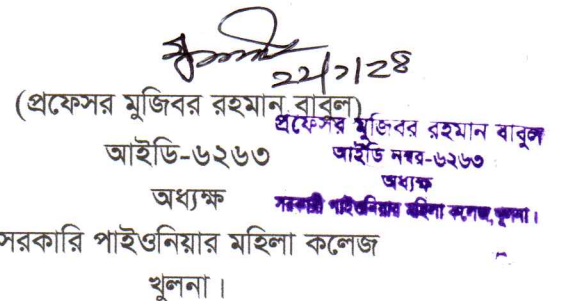 ২২/১/২৪
(প্রফেসর মুজিবর রহমান বাবুল)
আইডি-৬২৬৩
অধ্যক্ষ
সরকারি পাইওনিয়ার মহিলা কলেজ
খুলনা।
প্রফেসর মুজিবর রহমান বাবুল
আইডি নম্বর-৬২৬৩
অধ্যক্ষ
সরকারী পাইওনিয়ার মহিলা কলেজ, খুলনা।